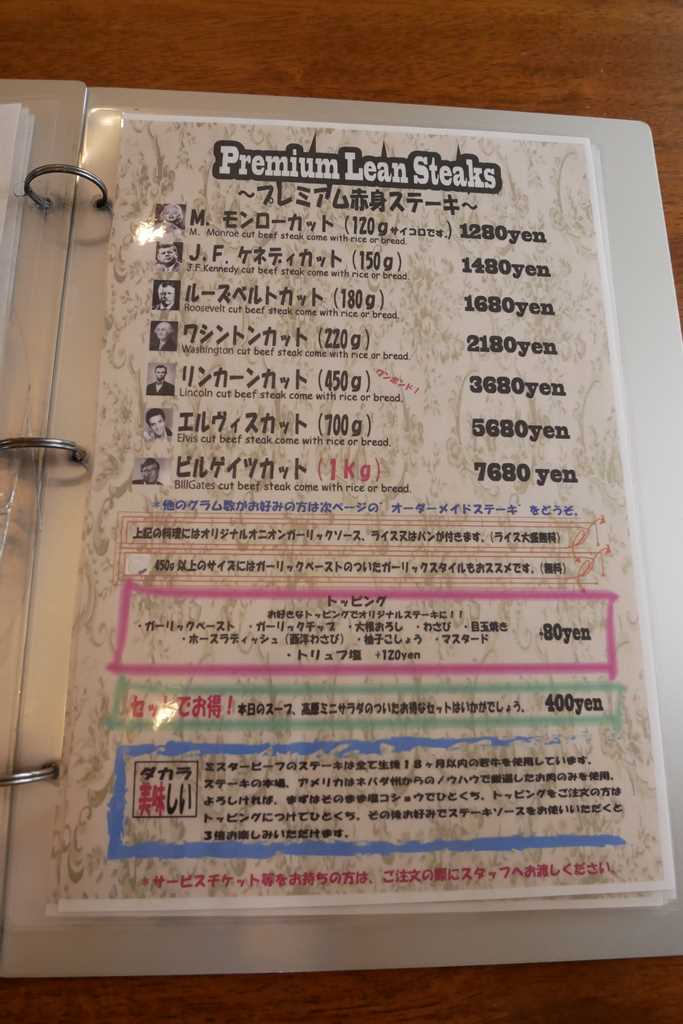 Premium Lean Steaks
～プレミアム赤身ステーキ～
M. モンローカット（120gサイコロです。）1280yen
M. Monroe cut beef steak come with rice or bread.
J.F. ケネディカット（150g） 1480yen
J.F.Kennedy cut beef steak come with rice or bread.
ルーズベルトカット（180g） 1680yen
Roosevelt cut beef steak come with rice or bread.
ワシントンカット（220g） 2180yen
Washington cut beef steak come with rice or bread.
リンカーンカット（450g）ワンポンド！ 3680yen
Lincoln cut beef steak come with rice or bread.
エルヴィスカット（700g） 5680yen
Elvis cut beef steak come with rice or bread.
ビルゲイツカット（1kg） 7680 yen
BillGates cut beef steak come with rice or bread.
＊他のグラム数がお好みの方は次ページの”オーダーメイドステーキ”をどうぞ。
上記の料理にはオリジナルオニオンガーリックソース、ライス又はパンが付きます。（ライス大盛無料）
450g以上のサイズにはガーリックペーストのついたガーリックスタイルもおススメです。（無料）
トッピング
お好きなトッピングでオリジナルステーキに！！
・ガーリックペースト ・ガーリックチップ ・大根おろし ・わさび ・目玉焼き
・ホースラディッシュ（西洋わさび） ・柚子ごしょう ・マスタード +80yen
・トリュフ塩 +120yen
セットでお得！本日のスープ、高原ミニサラダのついたお得なセットはいかがでしょう。 400yen
ダカラ美味しい
ミスタービーフのステーキは全て生後18ヶ月以内の若牛を使用しています。
ステーキの本場、アメリカはネバダ州からのノウハウで厳選したお肉のみを使用。
よろしければ、まずはそのまま塩コショウでひとくち、トッピングをご注文の方は
トッピングにつけてひとくち、その後お好みでステーキソースをお使いいただくと
3倍お楽しみいただけます。
＊サービスチケット等をお持ちの方は、ご注文の際にスタッフへお渡しください。